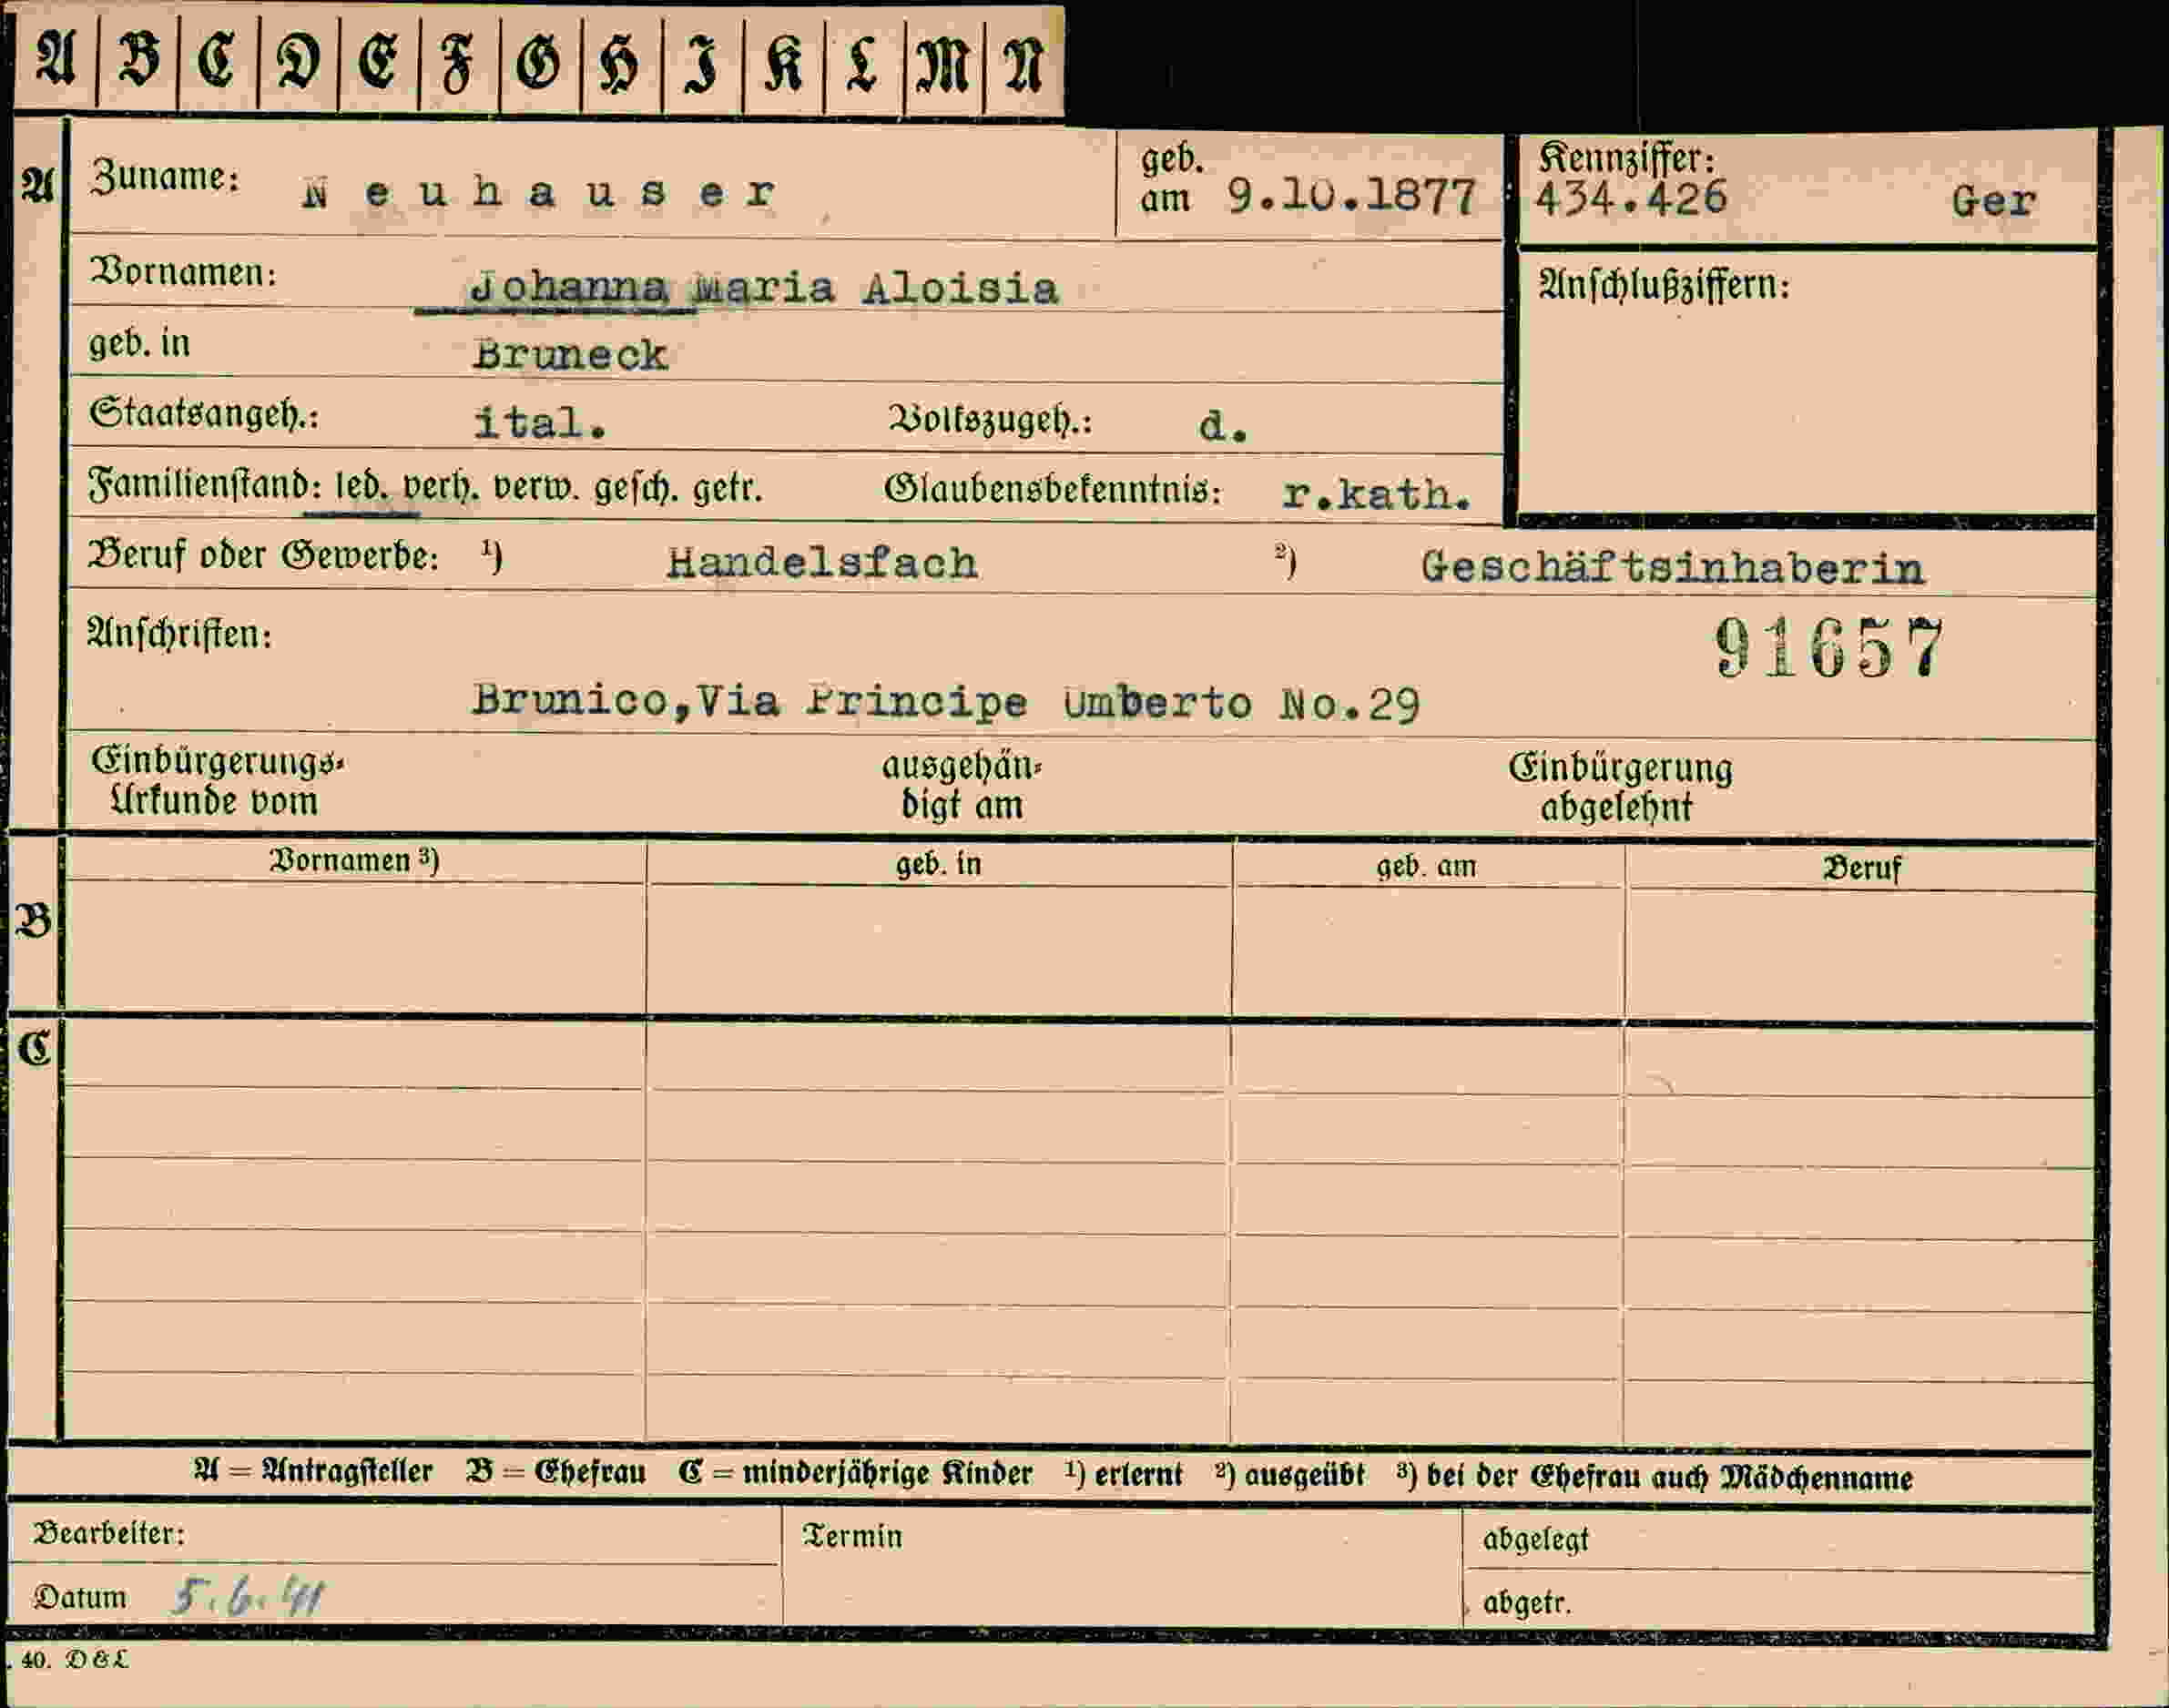 A B C D E F G H I K L M N
A Zuname: Neuhauser geb. am 9.10.1877 Kennziffer: 434.426 Ger
Vornamen: Johanna Maria Aloisia Anschlußziffern:
geb. in Bruneck
Staatsangeh.: ital. Volkszugeh.: d.
Familienstand: led. verh. verw. gesch. getr. Glaubensbekenntnis: r.kath.
Beruf oder Gewerbe: ¹) Handelsfach ²) Geschäftsinhaberin
Anschriften: 91657
Brunico,Via Principe Umberto No.29
Einbürgerungs- ausgehän- Einbürgerung
Urkunde vom digt am abgelehnt
Vornamen ³) geb. in geb. am Beruf
B
C
A = Antragsteller B = Ehefrau C = minderjährige Kinder ¹) erlernt ²) ausgeübt ³) bei der Ehefrau auch Mädchenname
Bearbeiter: Termin abgelegt
Datum 5.6.41 abgetr.
. 40. D & L